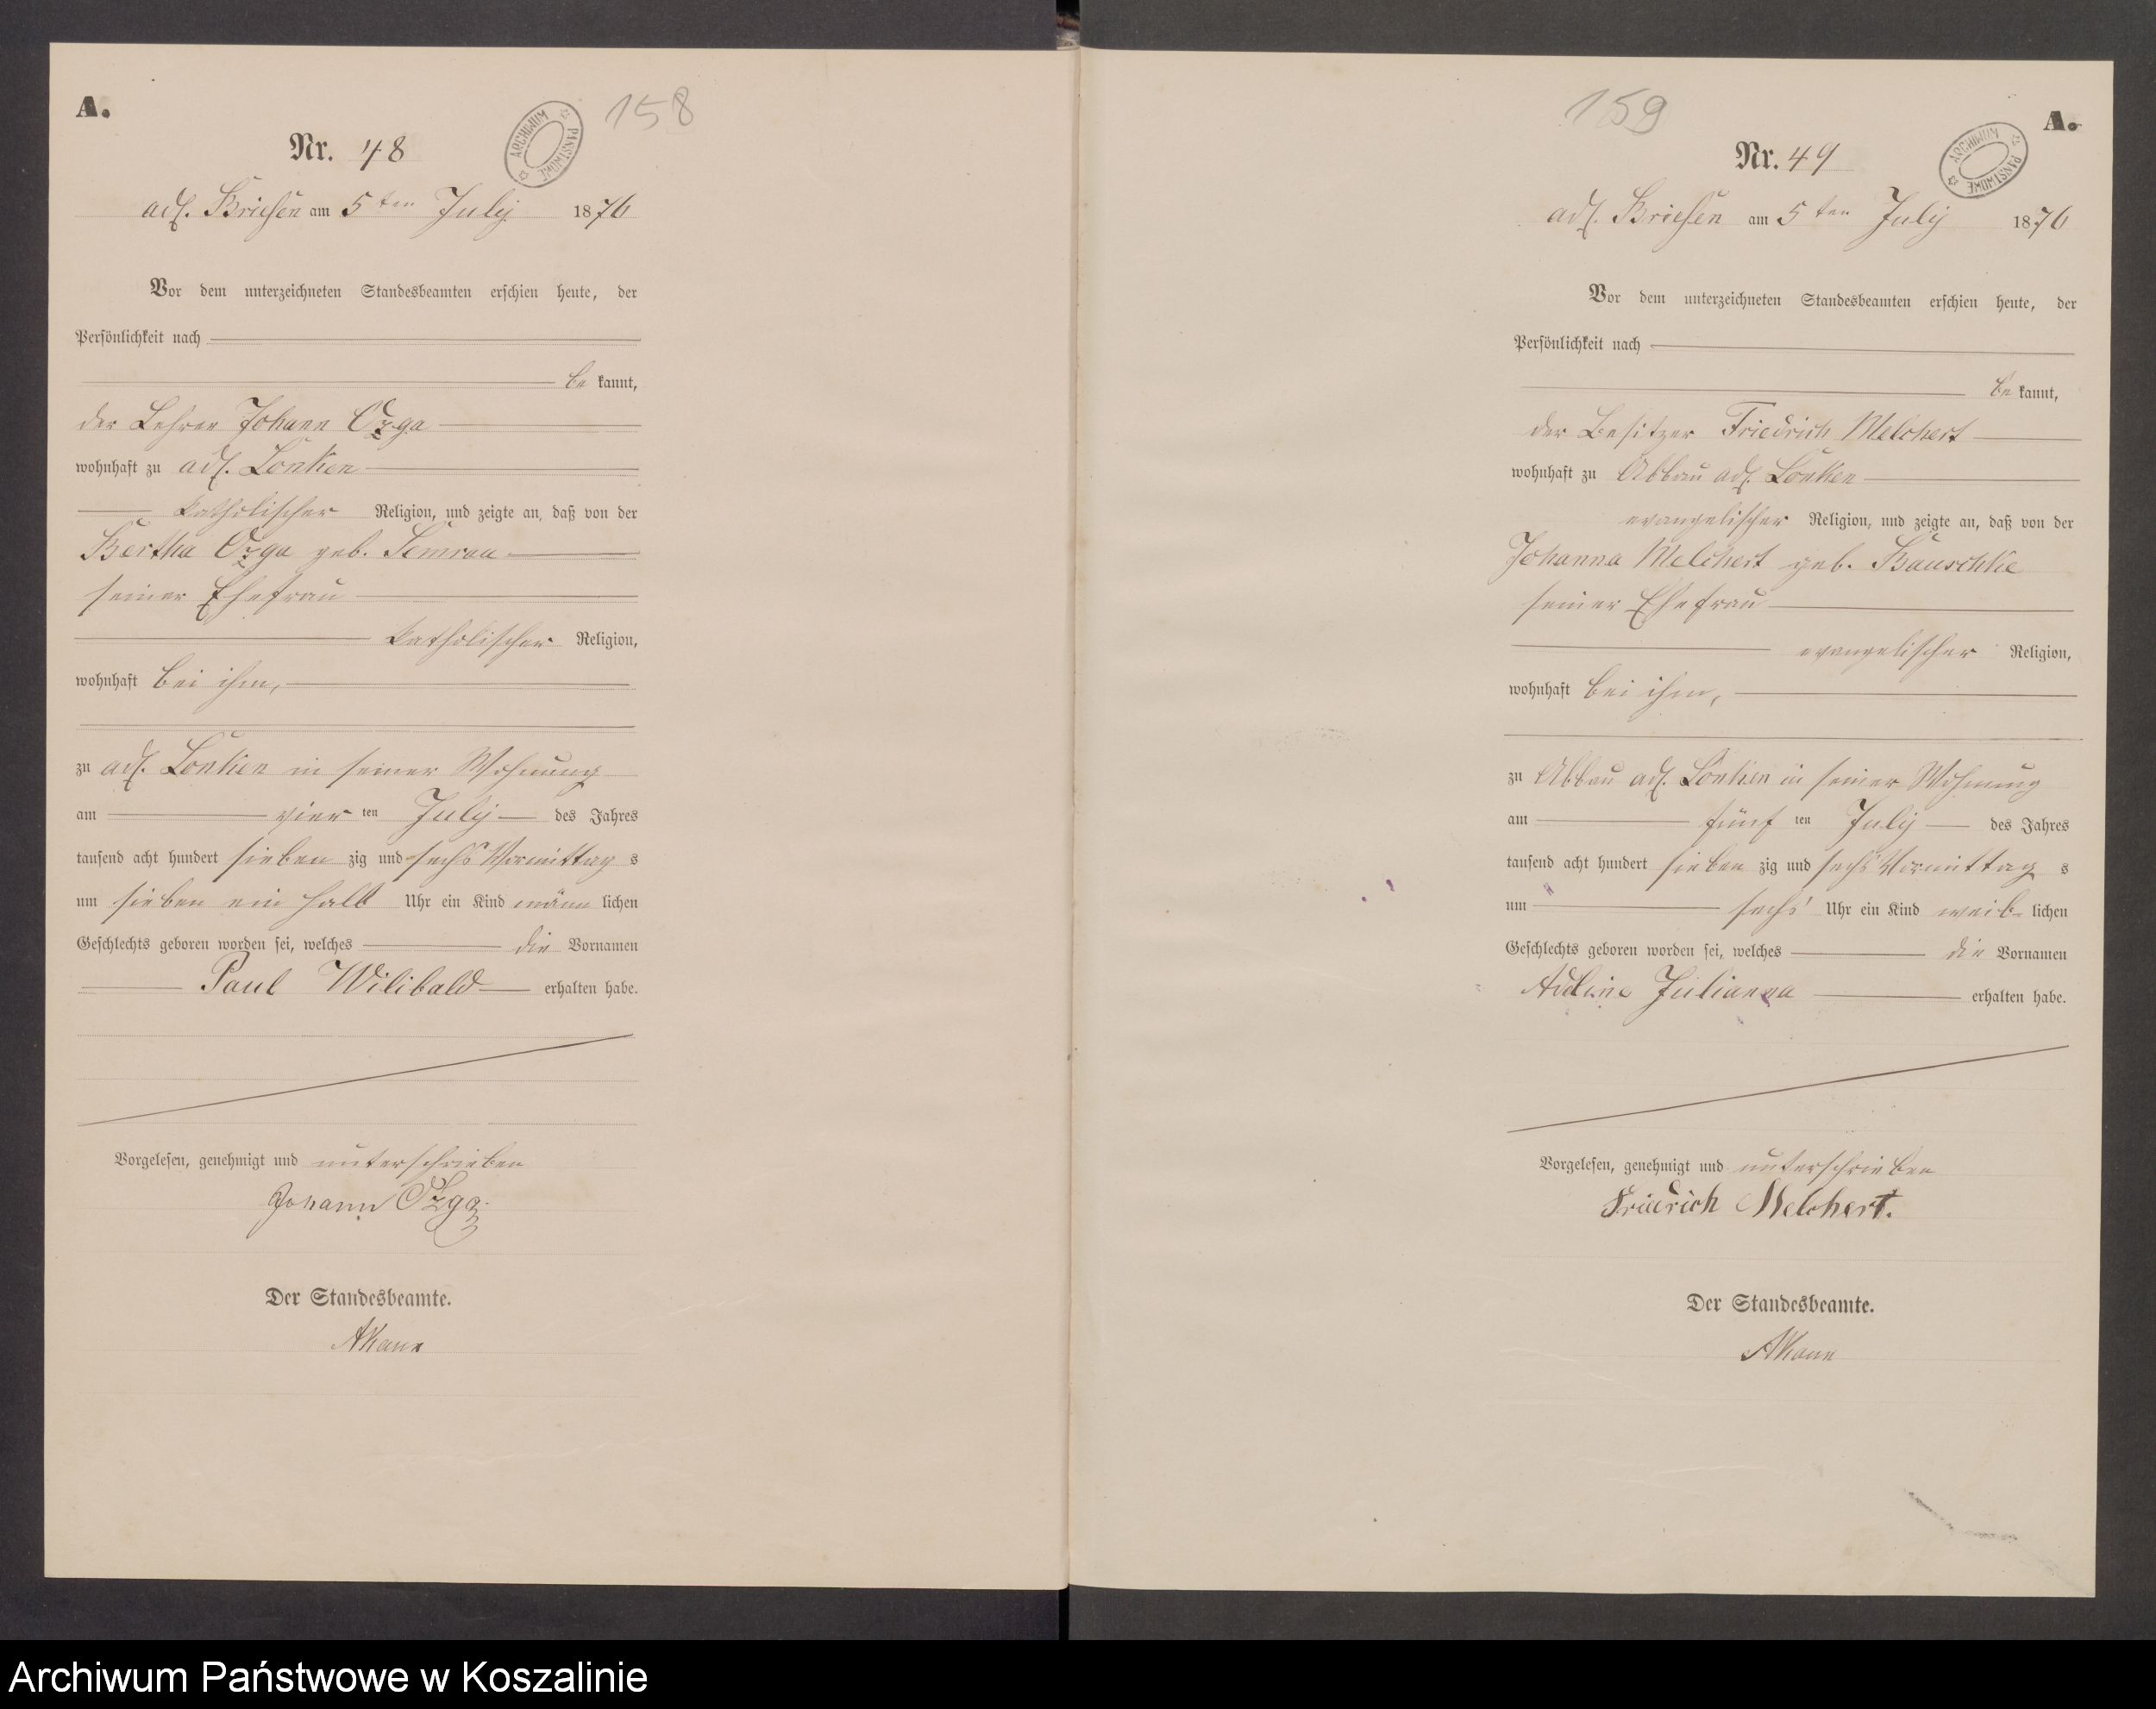 A.
158
Nr. 48
ARCHIWUM PAŃSTWOWE
adl. Briesen am 5ten July 1876
Vor dem unterzeichneten Standesbeamten erschien heute, der
Persönlichkeit nach
be kannt,
der Lehrer Johann Ozga
wohnhaft zu adl. Lonken
katholischer Religion, und zeigte an, daß von der
Bertha Ozga geb. Semrau
seiner Ehefrau
katholischer Religion,
wohnhaft bei ihm,
zu adl. Lonken in seiner Wohnung
am vier ten July des Jahres
tausend acht hundert sieben zig und sechs Vormittag s
um sieben ein halb Uhr ein Kind männ lichen
Geschlechts geboren worden sei, welches die Vornamen
Paul Wilibald erhalten habe.
Vorgelesen, genehmigt und unterschrieben
Johann Ozga
Der Standesbeamte.
159
A.
Nr. 49
ARCHIWUM PAŃSTWOWE
adl. Briesen am 5ten July 1876
Vor dem unterzeichneten Standesbeamten erschien heute, der
Persönlichkeit nach
be kannt,
der Besitzer Friedrich Melchert
wohnhaft zu Abbau adl. Lonken
evangelischer Religion, und zeigte an, daß von der
Johanna Melchert geb. Bauschke
seiner Ehefrau
evangelischer Religion,
wohnhaft bei ihm,
zu Abbau adl. Lonken in seiner Wohnung
am fünf ten July des Jahres
tausend acht hundert sieben zig und sechs Vormittag s
um sechs Uhr ein Kind weib lichen
Geschlechts geboren worden sei, welches die Vornamen
Julianna erhalten habe.
Vorgelesen, genehmigt und unterschrieben
Friedrich Melchert.
Der Standesbeamte.
Archiwum Państwowe w Koszalinie